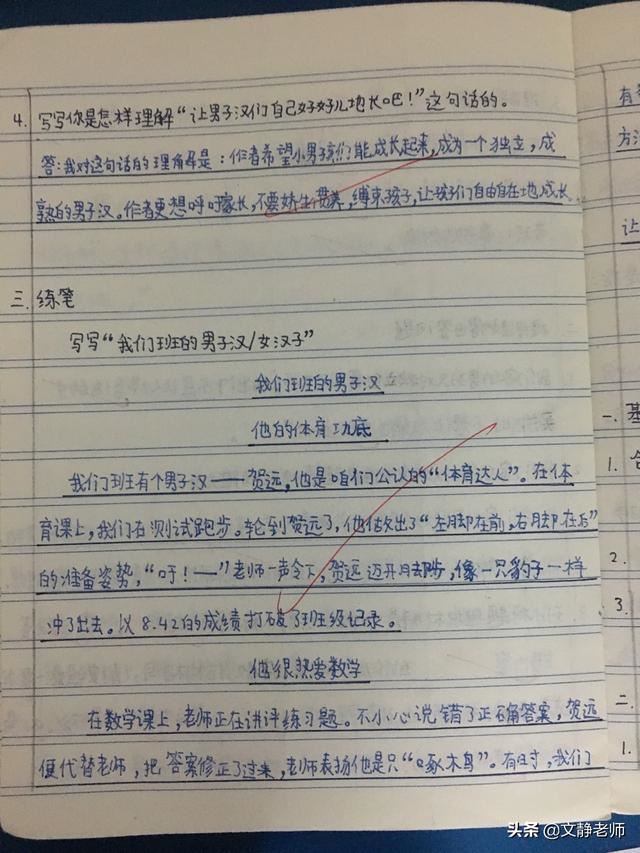 4. 写写你是怎样理解“让男子汉们自己好好儿地长吧！”这句话的。
答：我对这句话的理解是：作者希望小男孩们能成长起来，成为一个独立，成
熟的男子汉。作者更想呼吁家长，不要娇生惯养，缚束孩子，让孩子们自由自在地成长
三. 练笔
写写“我们班的男子汉/女汉子”
我们班的男子汉
他的体育功底
我们班有个男子汉——贺远，他是咱们公认的“体育达人”。在体
育课上，我们在测试跑步。轮到贺远了，他做出了“左脚在前，右脚在后”
的准备姿势，“吁！—”老师一声令下，贺远迈开脚步，像一只豹子一样
冲了出去。以8.42的成绩打破了班级记录。
他很热爱数学
在数学课上，老师正在讲评练习题。不小心说错了正确答案，贺远
便代替老师，把答案修正了过来，老师表扬他是只“啄木鸟”。有时，我们
有
方
让
一. 基
1.
2.
3.
二.
1.
头条 @文静老师